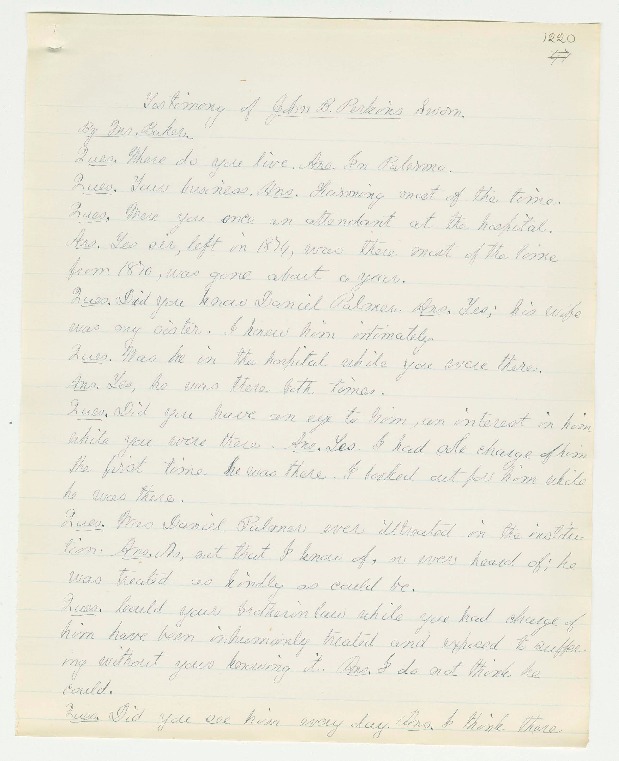 1220
Testimony of John B. Perkins Sworn.
By Mr. Baker.
Ques. Where do you live. Ans. In Palermo.
Ques. Your business. Ans. Farming most of the time.
Ques. Were you once an attendant at the hospital.
Ans. Yes sir, left in 1874, was there most of the time
from 1870, was gone about a year.
Ques. Did you know Daniel Palmer. Ans. Yes; his wife
was my sister. I knew him intimately.
Ques. Was he in the hospital while you were there.
Ans. Yes, he was there both times.
Ques. Did you have an eye to him, an interest in him
while you were there. Ans. Yes I had the charge of him
the first time he was there. I looked out for him while
he was there.
Ques. Was Daniel Palmer ever illtreated in the institu-
tion. Ans. No, not that I know of, or ever heard of; he
was treated as kindly as could be.
Ques. Could your brotherinlaw while you had charge of
him have been inhumanly treated and exposed to suffer-
ing without your knowing it. Ans. I do not think he
could.
Ques. Did you see him every day. Ans. I think there